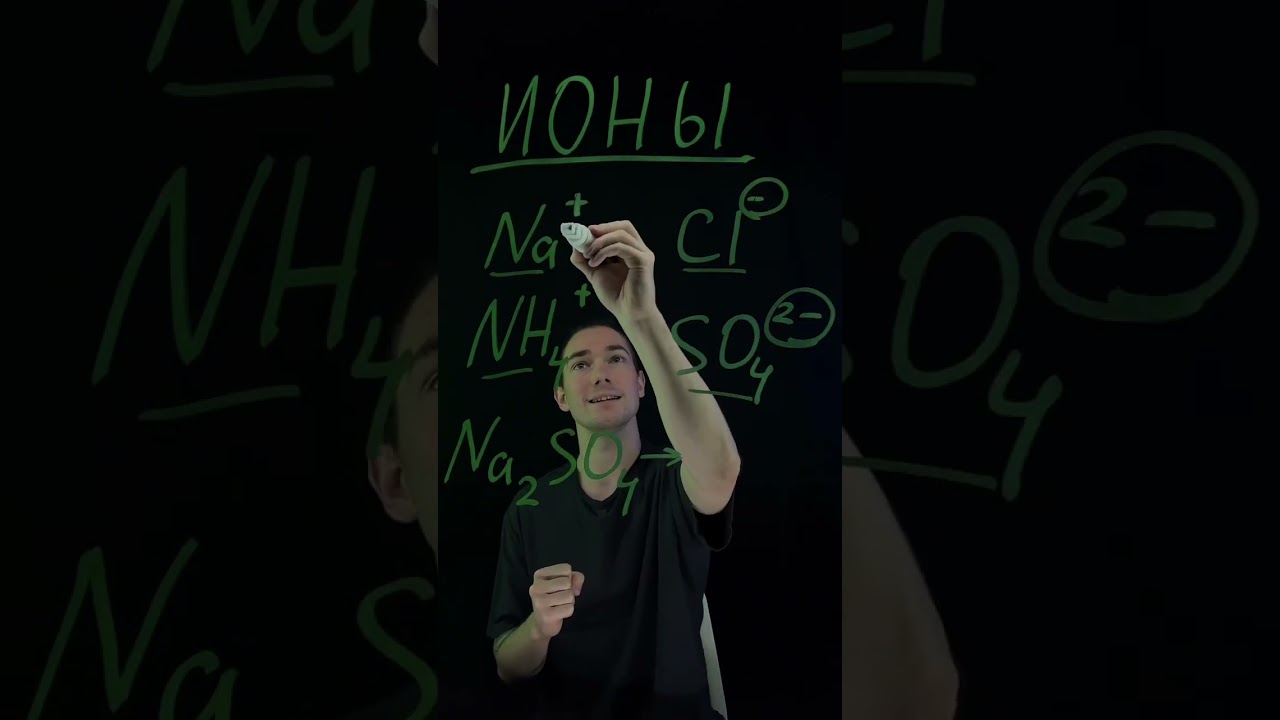 ИОНЫ
Na⁺ Cl⁻
NH₄⁺ SO₄²⁻
Na₂SO₄ →